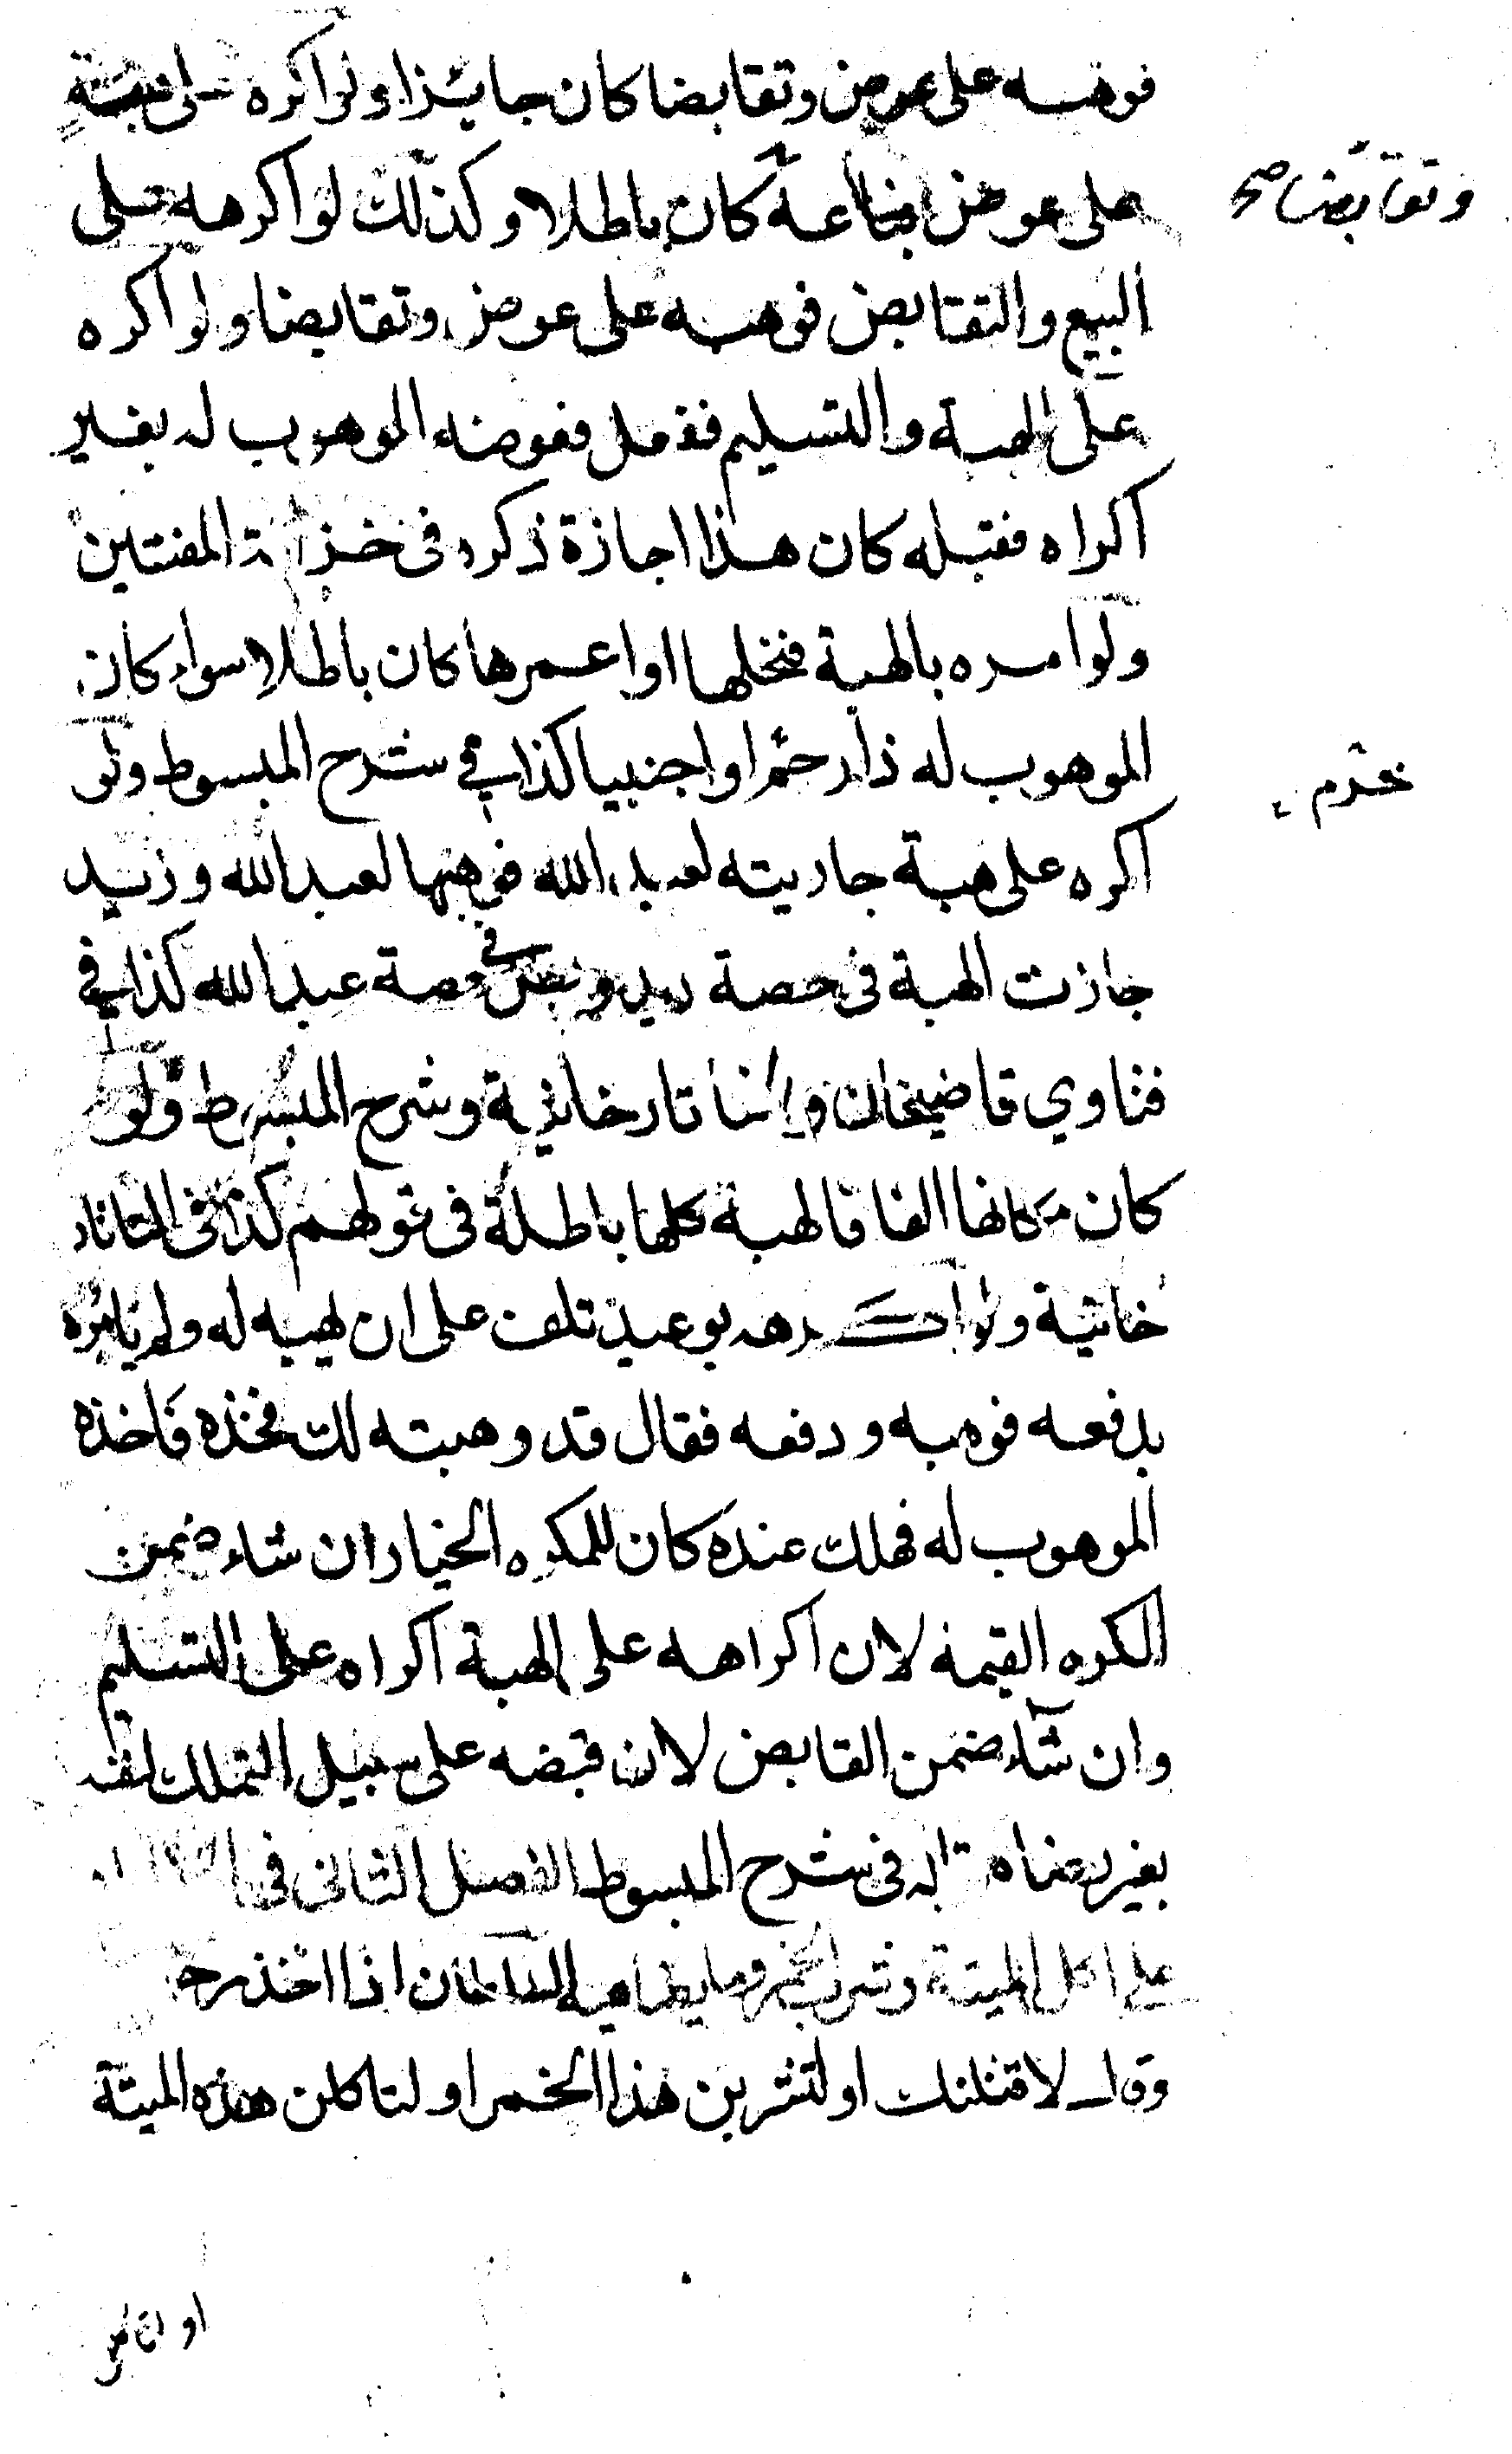 فوهبه على عوض وتقابضا كان جائزا ولو اكره على هبته
على عوض فباعه كان باطلا وكذلك لو اكرهه على
وتقابضا صح
البيع والتقابض فوهبه على عوض وتقابضا ولو اكره
على الهبة والتسليم ففعل فعوضه الموهوب له بغير
اكراه فقبله كان هذا اجازة ذكره فى خزانة المفتين
ولو امره بالهبة فنحلها او اعمرها كان باطلا سواء كان
الموهوب له ذا رحم او اجنبيا كذا في شرح المبسوط ولو
محرم
اكره على هبة جاريته لعبد الله فوهبها لعبد الله وزيد
جازت الهبة فى حصة زيد وبطل في حصة عبد الله كذا في
فتاوي قاضيخان والتاتارخانية وشرح المبسوط ولو
كان مكانها الفا فالهبة كلها باطلة فى قولهم كذا فى التاتار
خانية ولو اكرهه بوعيد تلف على ان يهبه له ولم يامره
بدفعه فوهبه ودفعه فقال قد وهبته لك فخذه فاخذه
الموهوب له فهلك عنده كان للمكره الخيار ان شاء ضمن
المكره القيمة لان اكراهه على الهبة اكراه على التسليم
وان شاء ضمن القابض لان قبضه على سبيل التملك لنفسه
بغير رضاه فى شرح المبسوط الفصل الثانى فى
على اكل الميتة وشرب الخمر وما السلطان اذا اخذ رجلا
وقال لاقتلنك او لتشربن هذا الخمر او لتاكلن هذه الميتة
او